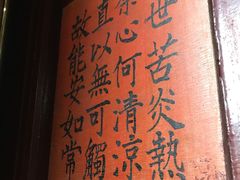 世苦炎熱
余心何清涼
直以無可觸
故能安如常